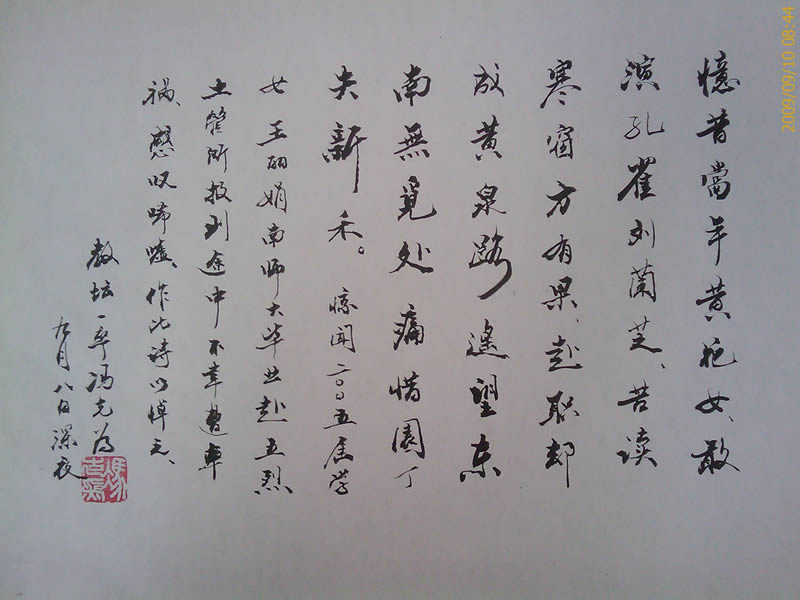 憶昔當年黄花女、敢
演孔雀刘蘭芝、苦读
寒窗方有果、赴职却
成黄泉路遙望东
南無覓处痛惜園丁
失新禾。惊闻二〇〇五届学
女王丽娟南师大毕业赴五烈
土管所报到途中不幸遭車
祸、感叹唏嘘、作此诗以悼之、
教坛一卒冯克为
九月八日深夜
2009/09/10 08:44